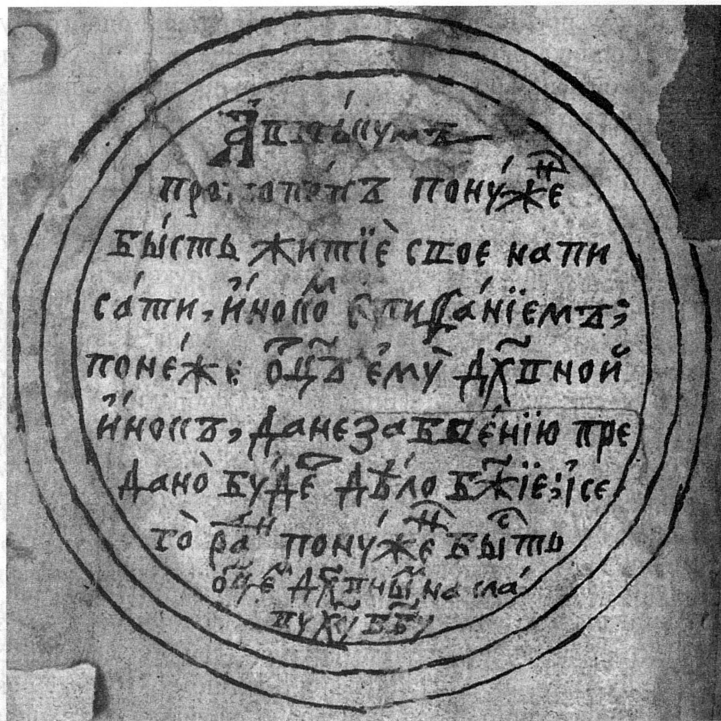 Аввакумъ
протопопъ понужеⷩ҇
бысть житїе свое напи
сати, инокоⷨ епифанїемъ;
понеже ѻц҃ъ ему дх҃вной
инокъ, да не забвенїю пре
дано будеⷮ дѣло бж҃їе; і се
го раⷣи понужеⷩ҇ быⷭ҇ть
ѻц҃еⷨ дх҃вныⷨ на сла
ву хс҃у бг҃у